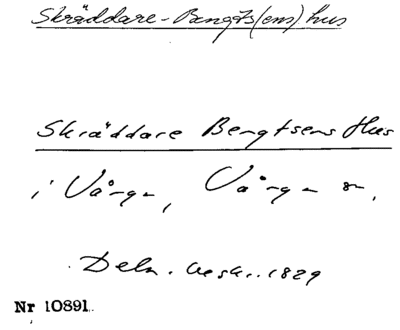 Skräddare-Bengts(ens) hus
Skräddare Bengtsens Hus
i Vånga, Vånga sn.
Deln. beskr. 1829
Nr 10891.